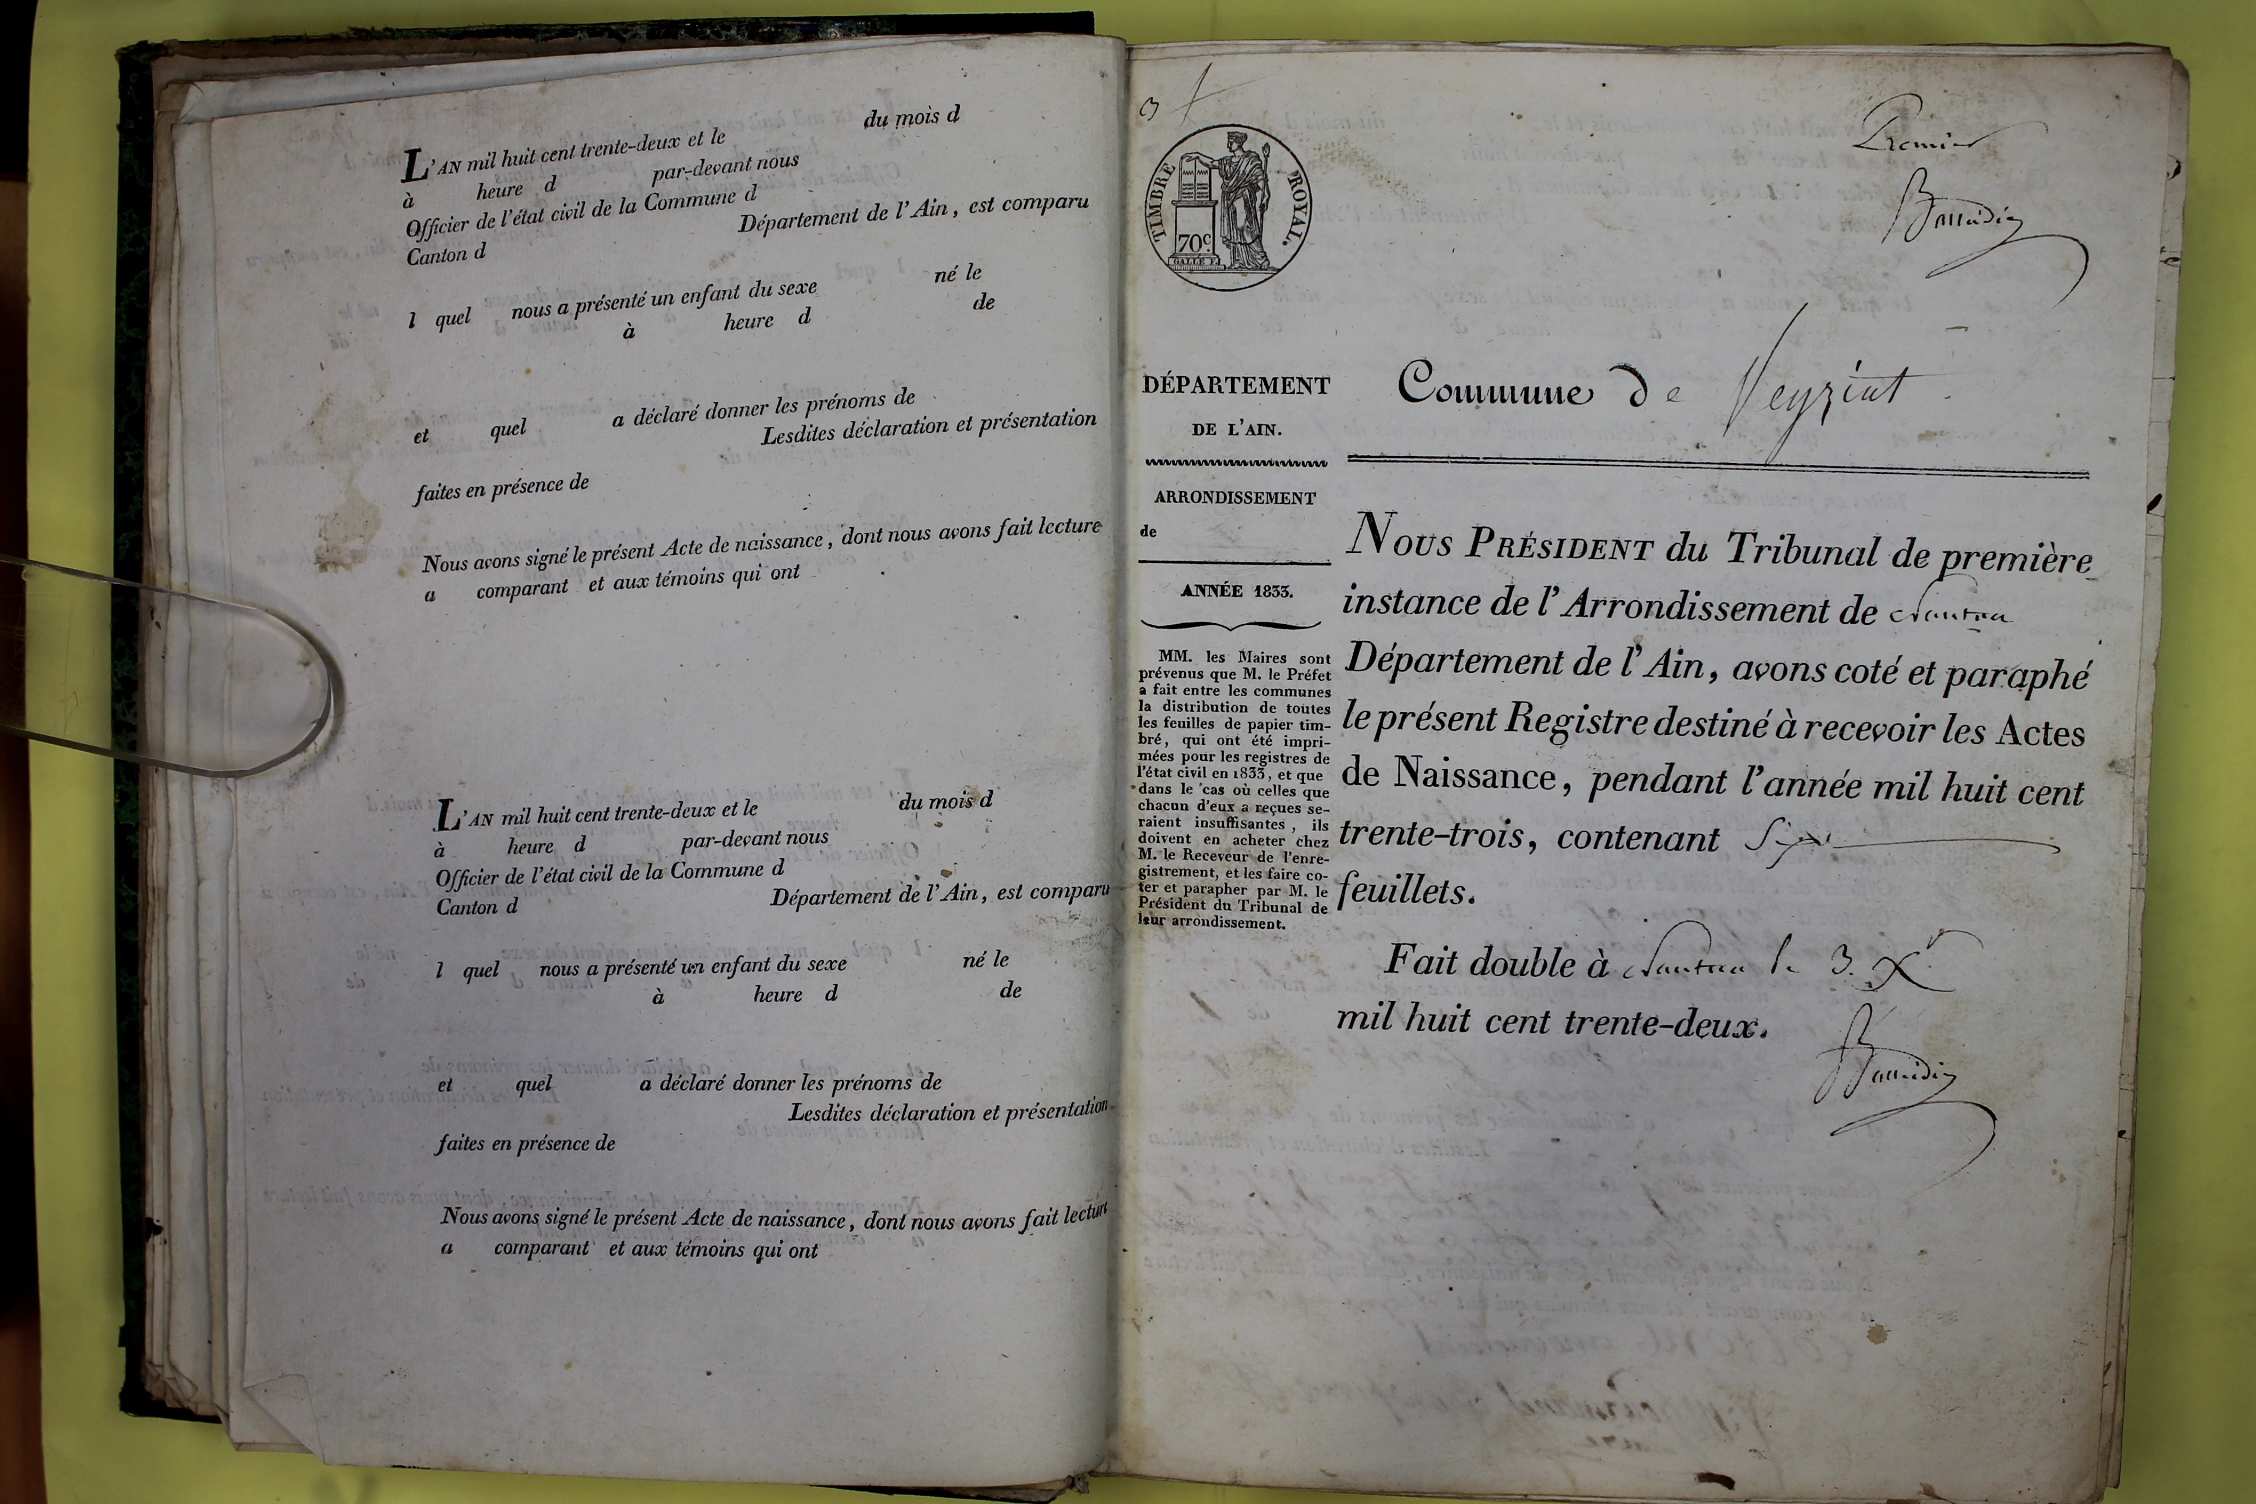 L'AN mil huit cent trente-deux et le du mois d
à heure d par-devant nous
Officier de l'état civil de la Commune d
Canton d Département de l'Ain, est comparu
l quel nous a présenté un enfant du sexe né le
à heure d de
et quel a déclaré donner les prénoms de
Lesdites déclaration et présentation
faites en présence de
Nous avons signé le présent Acte de naissance, dont nous avons fait lecture
a comparant et aux témoins qui ont
L'AN mil huit cent trente-deux et le du mois d
à heure d par-devant nous
Officier de l'état civil de la Commune d
Canton d Département de l'Ain, est comparu
l quel nous a présenté un enfant du sexe né le
à heure d de
et quel a déclaré donner les prénoms de
Lesdites déclaration et présentation
faites en présence de
Nous avons signé le présent Acte de naissance, dont nous avons fait lecture
a comparant et aux témoins qui ont
3
TIMBRE ROYAL.
70c.
GALLE F.
Premier
DÉPARTEMENT
DE L'AIN.
ARRONDISSEMENT
de
ANNÉE 1833.
MM. les Maires sont
prévenus que M. le Préfet
a fait entre les communes
la distribution de toutes
les feuilles de papier tim-
bré, qui ont été impri-
mées pour les registres de
l'état civil en 1833, et que
dans le cas où celles que
chacun d'eux a reçues se-
raient insuffisantes, ils
doivent en acheter chez
M. le Receveur de l'enre-
gistrement, et les faire co-
ter et parapher par M. le
Président du Tribunal de
leur arrondissement.
Commune de Veyziat
NOUS PRÉSIDENT du Tribunal de première
instance de l'Arrondissement de Nantua
Département de l'Ain, avons coté et paraphé
le présent Registre destiné à recevoir les Actes
de Naissance, pendant l'année mil huit cent
trente-trois, contenant Six
feuillets.
Fait double à Nantua le 3. Xr
mil huit cent trente-deux.